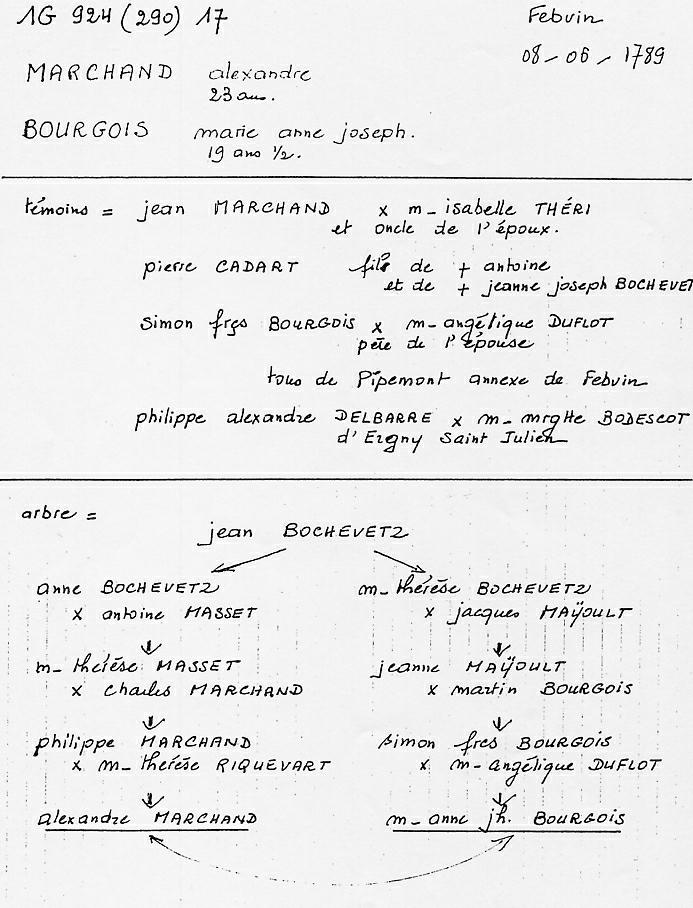 1G 924 (290) 17
Febvin
08-06-1789
MARCHAND alexandre
23 ans.
BOURGOIS marie anne joseph.
19 ans 1/2.
témoins = jean MARCHAND x m- isabelle THÉRI
et oncle de l'époux.
pierre CADART fils de + antoine
et de + jeanne joseph BOCHEVET
Simon frçs BOURGOIS x m- angélique DUFLOT
père de l'épouse
tous de Pipemont annexe de Febvin
philippe alexandre DELBARRE x m- mrgtte BODESCOT
d'Ergny Saint Julien
arbre =
jean BOCHEVETZ
anne BOCHEVETZ
x antoine MASSET
m- thérèse BOCHEVETZ
x jacques MAŸOULT
m- thérèse MASSET
x Charles MARCHAND
jeanne MAŸOULT
x martin BOURGOIS
philippe MARCHAND
x m- thérèse RIQUEVART
simon frçs BOURGOIS
x m- angélique DUFLOT
alexandre MARCHAND
m- anne jh. BOURGOIS